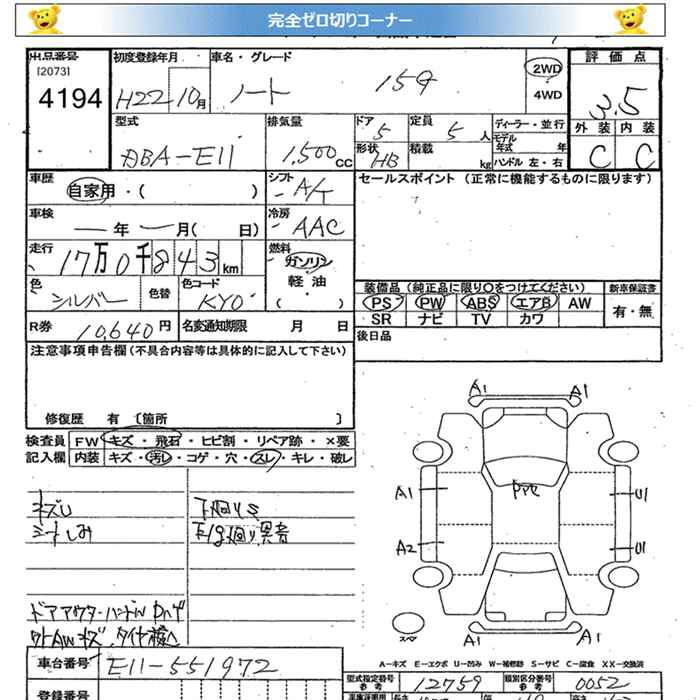 完全ゼロ切りコーナー
出品番号 初度登録年月 車名・グレード 評価点
[2073]
4194 H22 10月 ノート 15G 2WD 3.5
4WD
型式 排気量 ドア 定員 ディーラー・並行 外装 内装
DBA-E11 1,500cc 5 5人 モデル年式 年 C C
形状 HB 積載 kg ハンドル 左・右
車歴 シフト セールスポイント (正常に機能するものに限ります)
自家用・( ) A/T
車検 冷房
ー年ー月( 日) AAC
走行 燃料
17万0千843km ガソリン
軽油
( )
色 色替 色コード 装備品(純正品に限り○をつけてください) 新車保証書
シルバー KY0 PS PW ABS エアB AW 有・無
SR ナビ TV カワ
R券 10,640円 名変通知期限 月 日 後日品
注意事項申告欄(不具合内容等は具体的に記入して下さい)
修復歴 有 [箇所 ]
検査員 FW キズ・飛石・ヒビ割・リペア跡・×要
記入欄 内装 キズ・汚レ・コゲ・穴・スレ・キレ・破レ
A1 A1
キズU 下廻りS
シートしみ E/g廻り異音
A1 U1
A2 U1
ドアアウターハンドル
A1 A1
A-キズ E-エクボ U-凹み W-補修跡 S-サビ C-腐食 XX-交換済
車台番号 E11-551972
型式指定番号 12759 類別区分番号 0052
参考 参考
登録番号